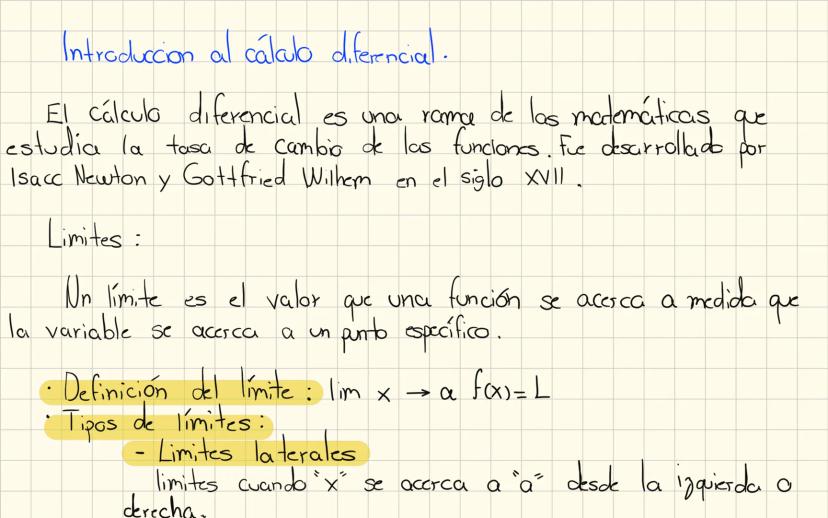 Introduccion al cálculo diferencial.
El cálculo diferencial es una rama de las matemáticas que
estudia la tasa de cambio de las funciones. Fue desarrollado por
Isacc Newton y Gottfried Wilhem en el siglo XVII.
Limites:
Un límite es el valor que una función se acerca a medida que
la variable se acerca a un punto específico.
· Definición del límite: lim x → a f(x)=L
· Tipos de límites:
- Limites laterales
limites cuando "x" se acerca a "a" desde la izquierda o
derecha.